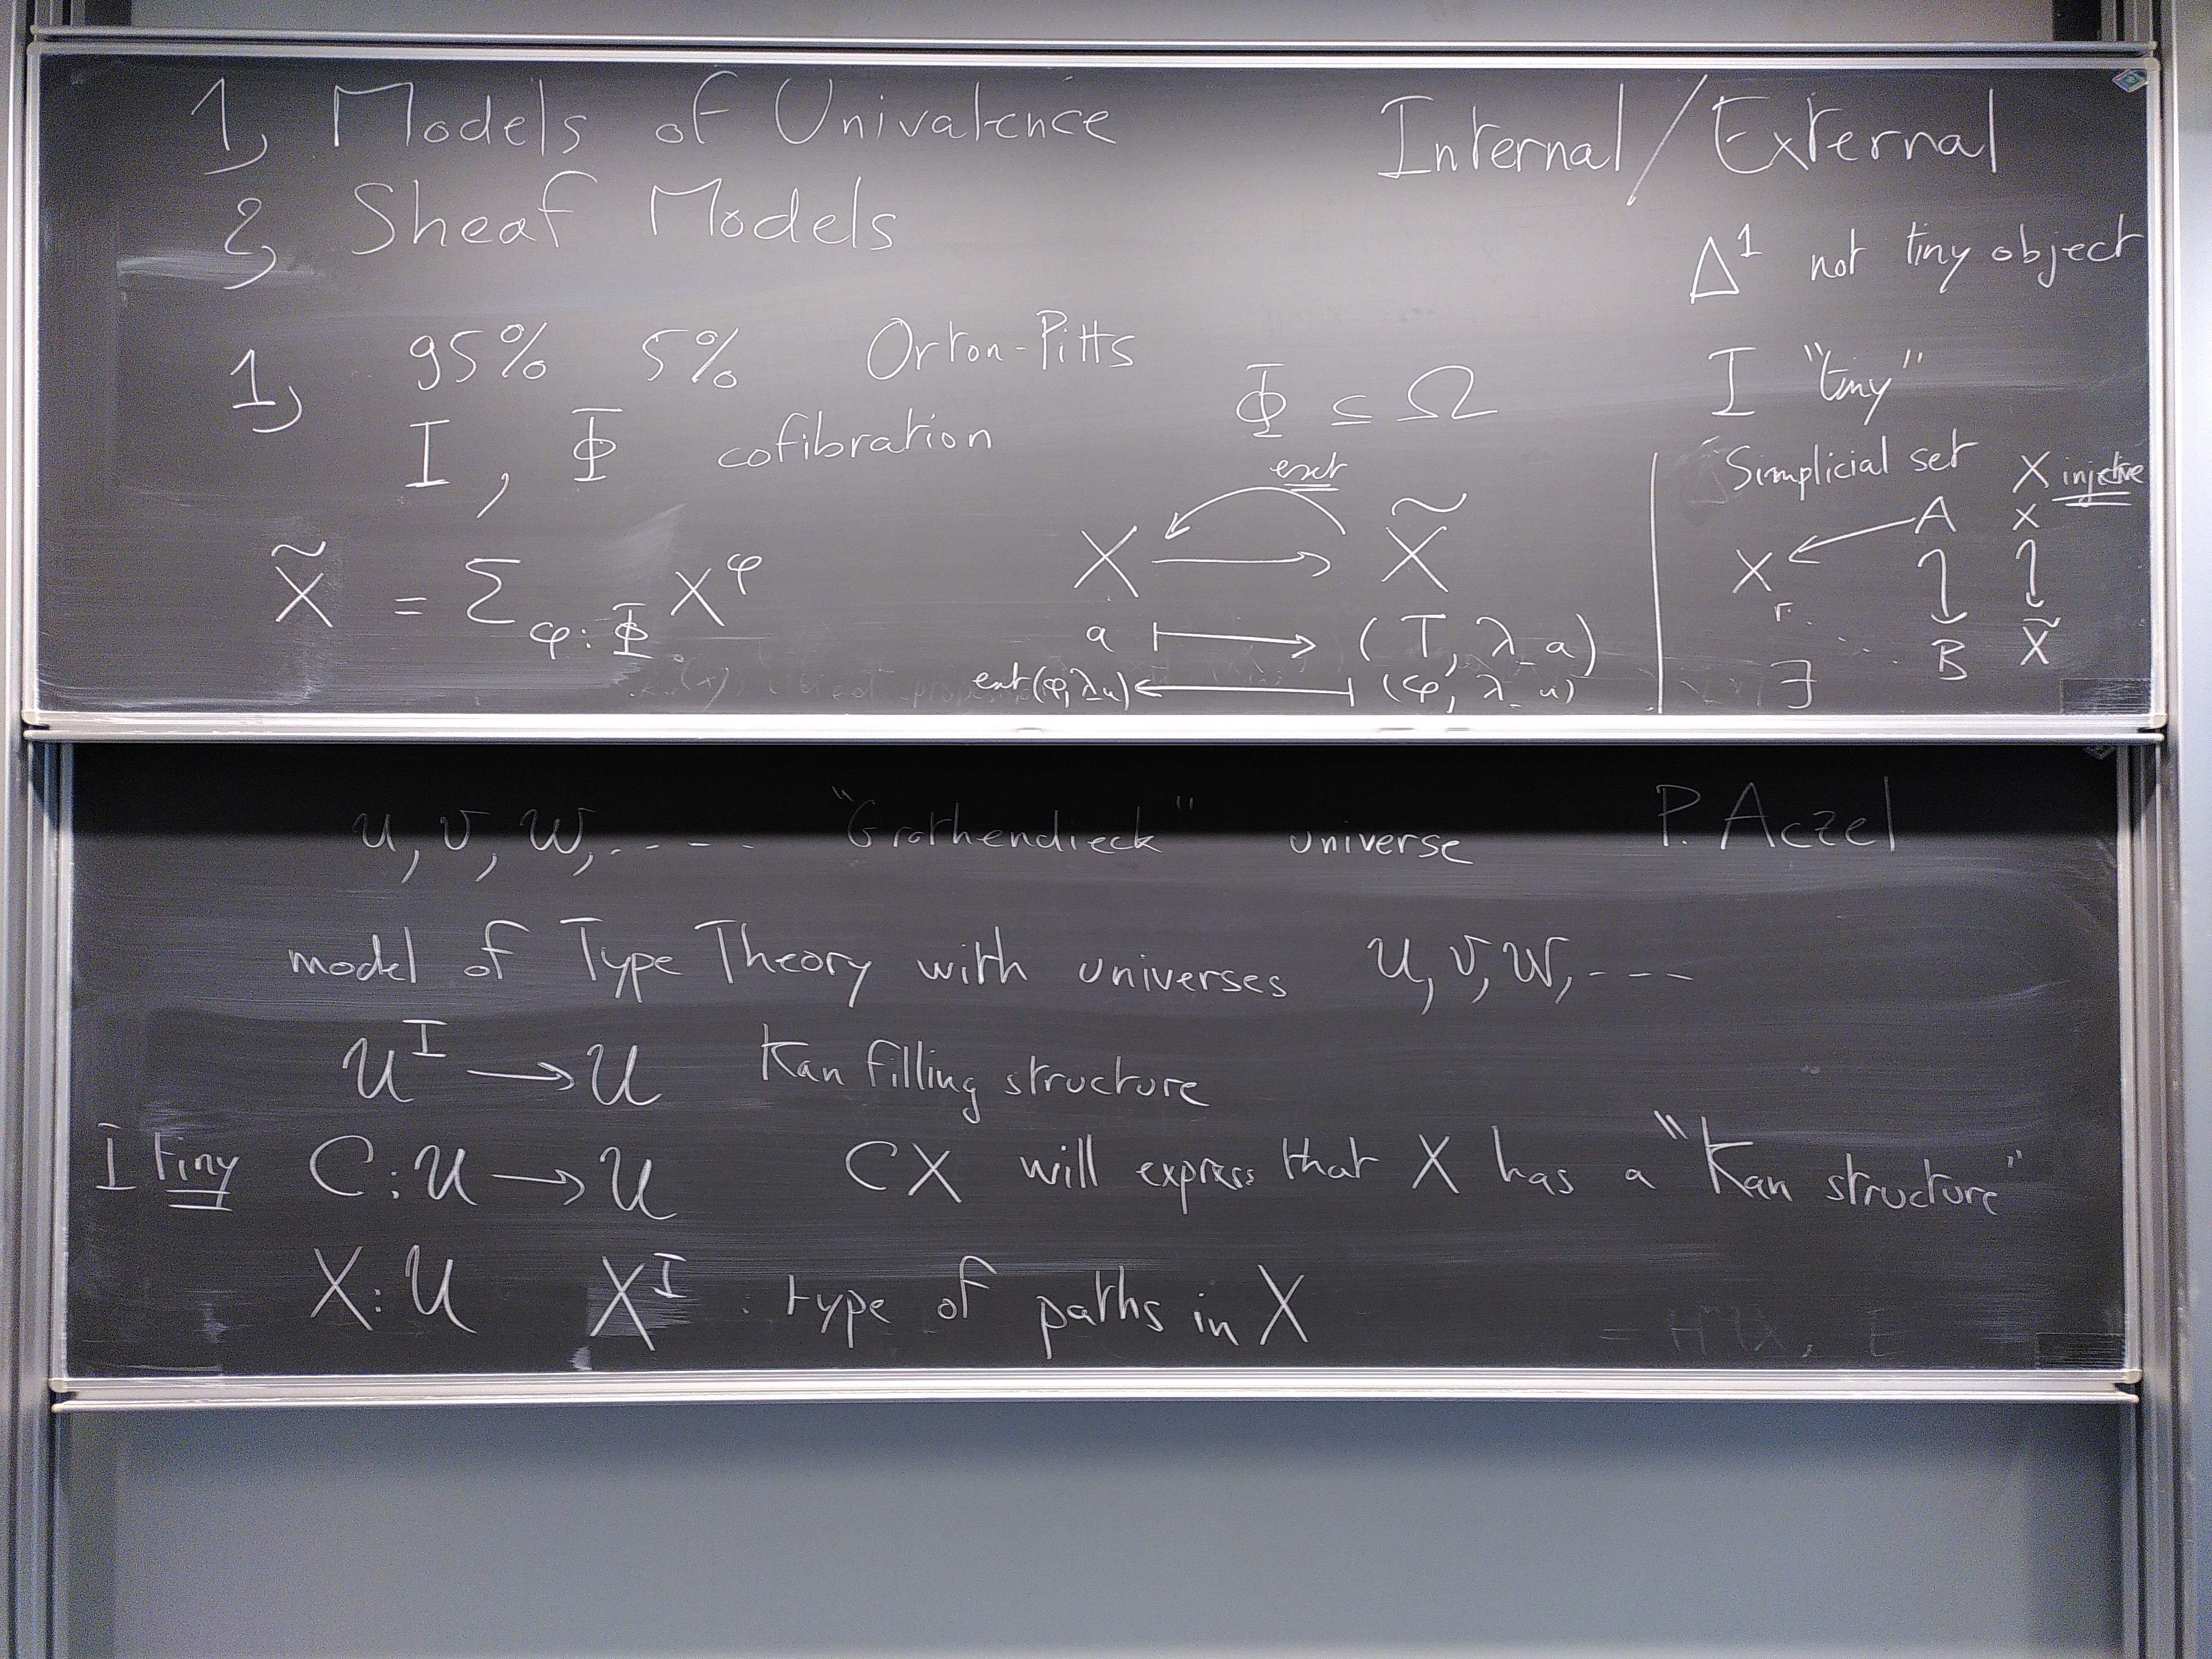 1, Models of Univalence
2, Sheaf Models
Internal/External
Δ¹ not tiny object
1, 95% 5% Orton-Pitts
I, Φ cofibration
Φ ⊆ Ω
I "tiny"
X̃ = Σ_{φ:Φ} X^φ
ext
X → X̃
a ↦ (T, λ_a)
ext(φ, λ_u) ↤ (φ, λ_u)
Simplicial set X injective
X ← A X
B X̃
∃
U, V, W, .---- "Grothendieck" universe P. Aczel
model of Type Theory with universes U, V, W, ---
U^I → U Kan filling structure
I tiny C: U → U CX will express that X has a "Kan structure"
X: U X^I : type of paths in X